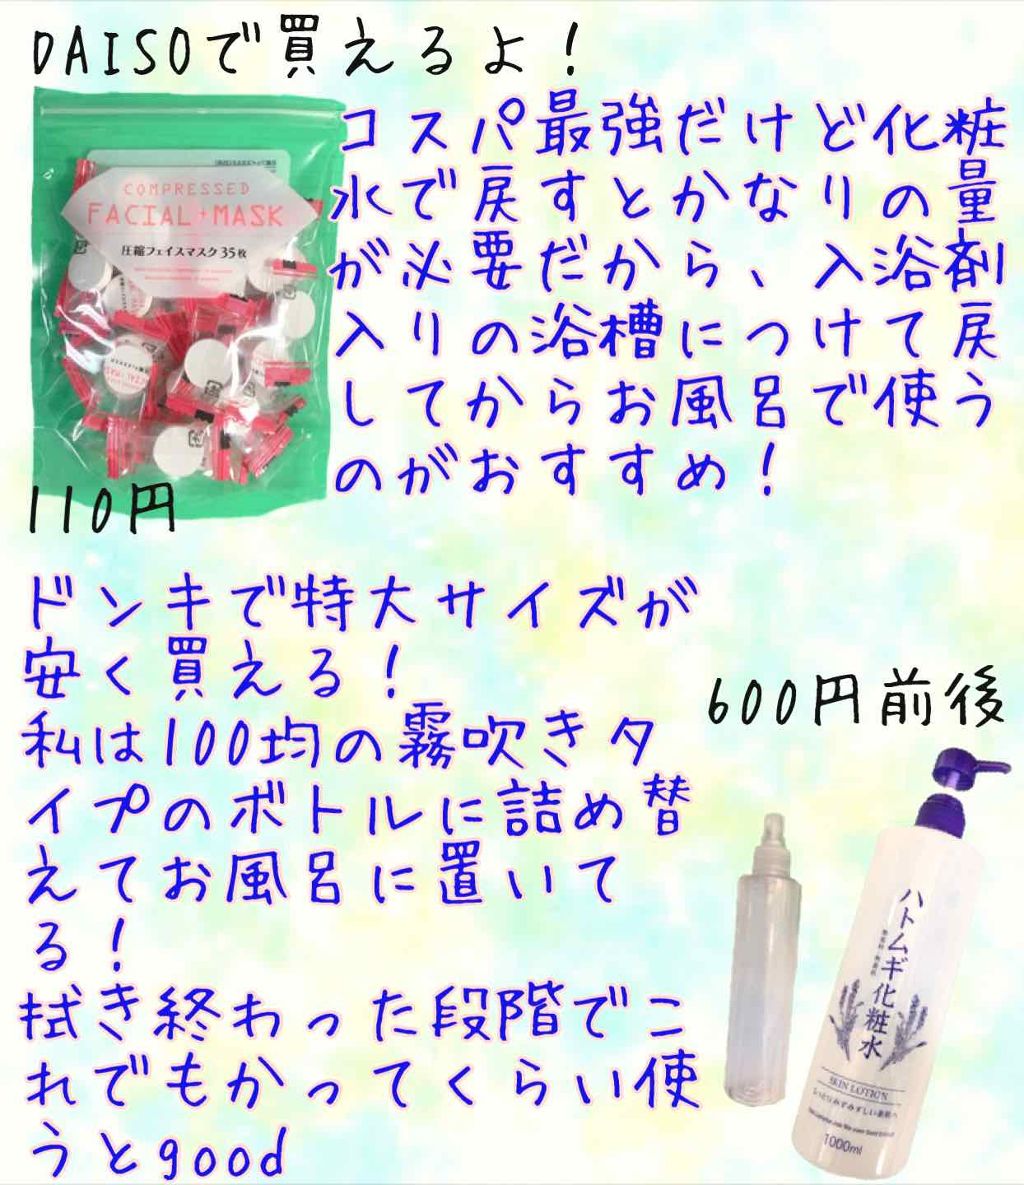 DAISOで買えるよ！
コスパ最強だけど化粧
水で戻すとかなりの量
が必要だから、入浴剤
入りの浴槽につけて戻
してからお風呂で使う
のがおすすめ！
COMPRESSED
FACIAL+MASK
圧縮フェイスマスク35枚
110円
ドンキで特大サイズが
安く買える！
私は100均の霧吹きタ
イプのボトルに詰め替
えてお風呂に置いて
る！
拭き終わった段階でこ
れでもかってくらい使
うとgood
600円前後
ハトムギ化粧水
SKIN LOTION
1000ml